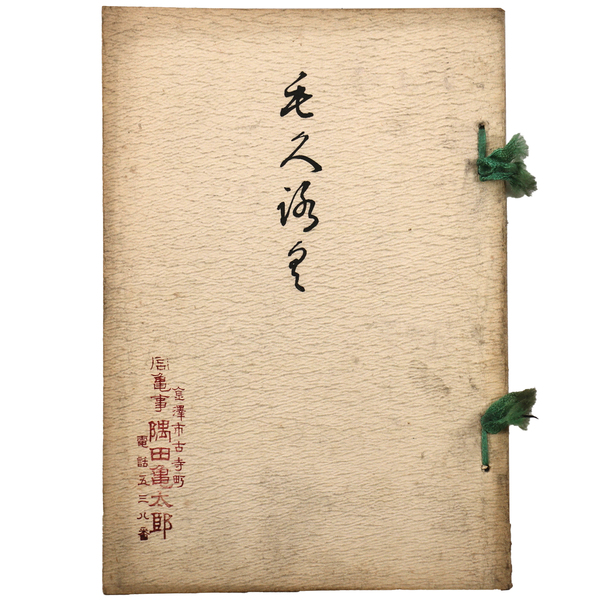 毛久路具
金澤市古寺町
信亀事
隅田亀太郎
電話五三八番